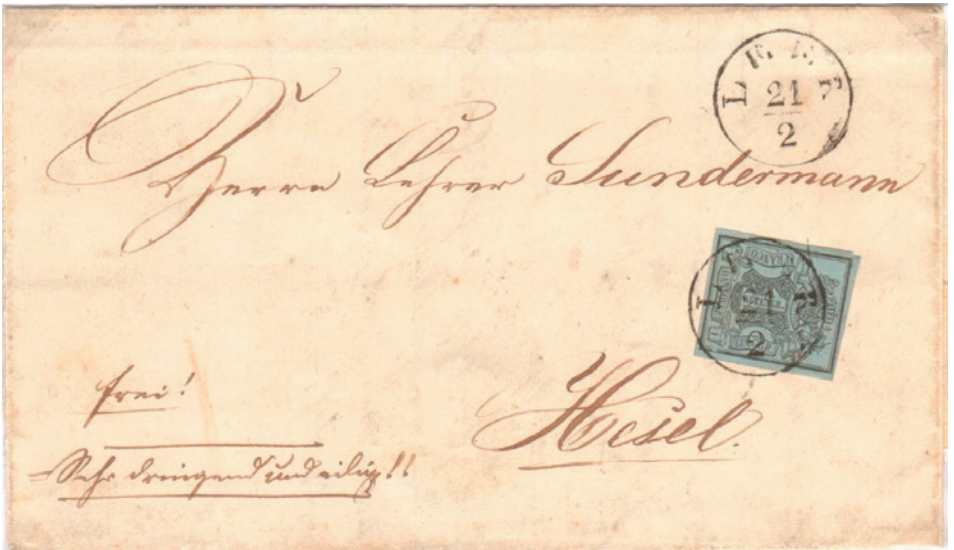 LEER
21
2
Herrn Lehrer Sundermann
FRANCO
LEER
21
2
frei!
Hesel.
Sehr dringend und eilig!!